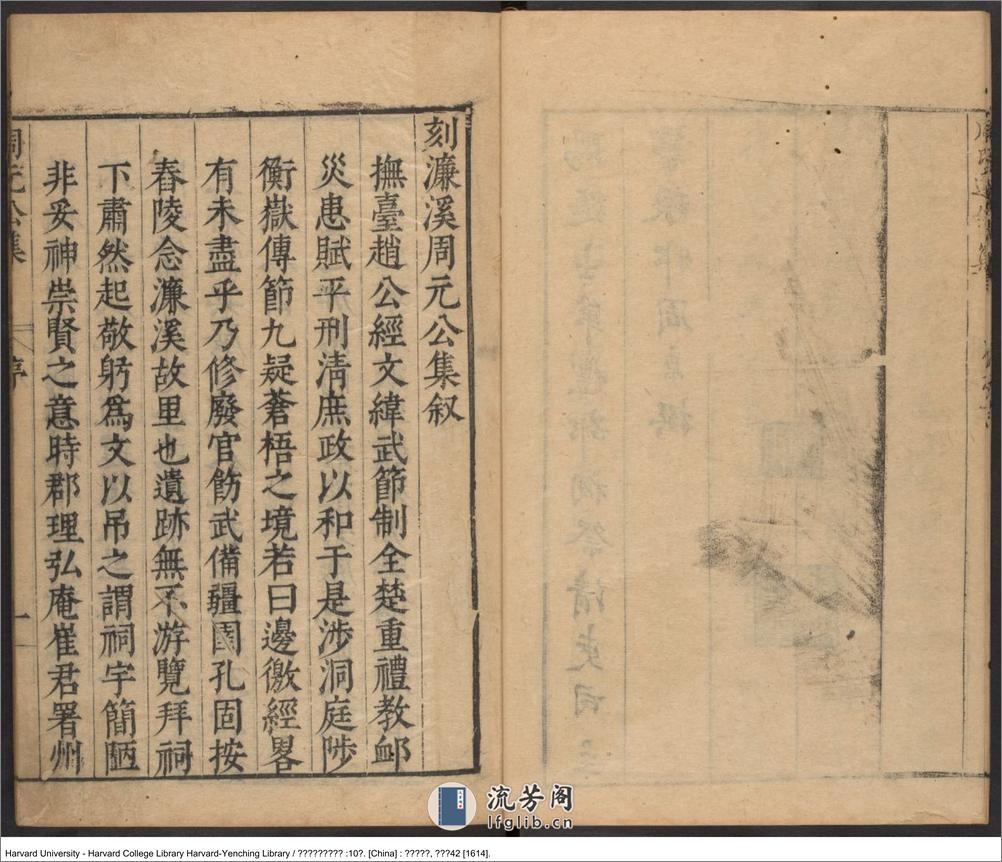 刻濂溪周元公集叙
撫臺趙公經文緯武節制全楚重禮教卹
災患賦平刑清庶政以和于是涉洞庭陟
衡嶽傳節九疑蒼梧之境若曰邊徼經畧
有未盡乎乃修廢官飭武備疆圉孔固按
舂陵念濂溪故里也遺跡無不游覽拜祠
下肅然起敬躬為文以吊之謂祠宇簡陋
非妥神崇賢之意時郡理弘庵崔君署州
周元公集
序
一
流芳阁
lfglib.cn
Harvard University - Harvard College Library Harvard-Yenching Library / ????????? :10?. [China] : ?????, ???42 [1614].